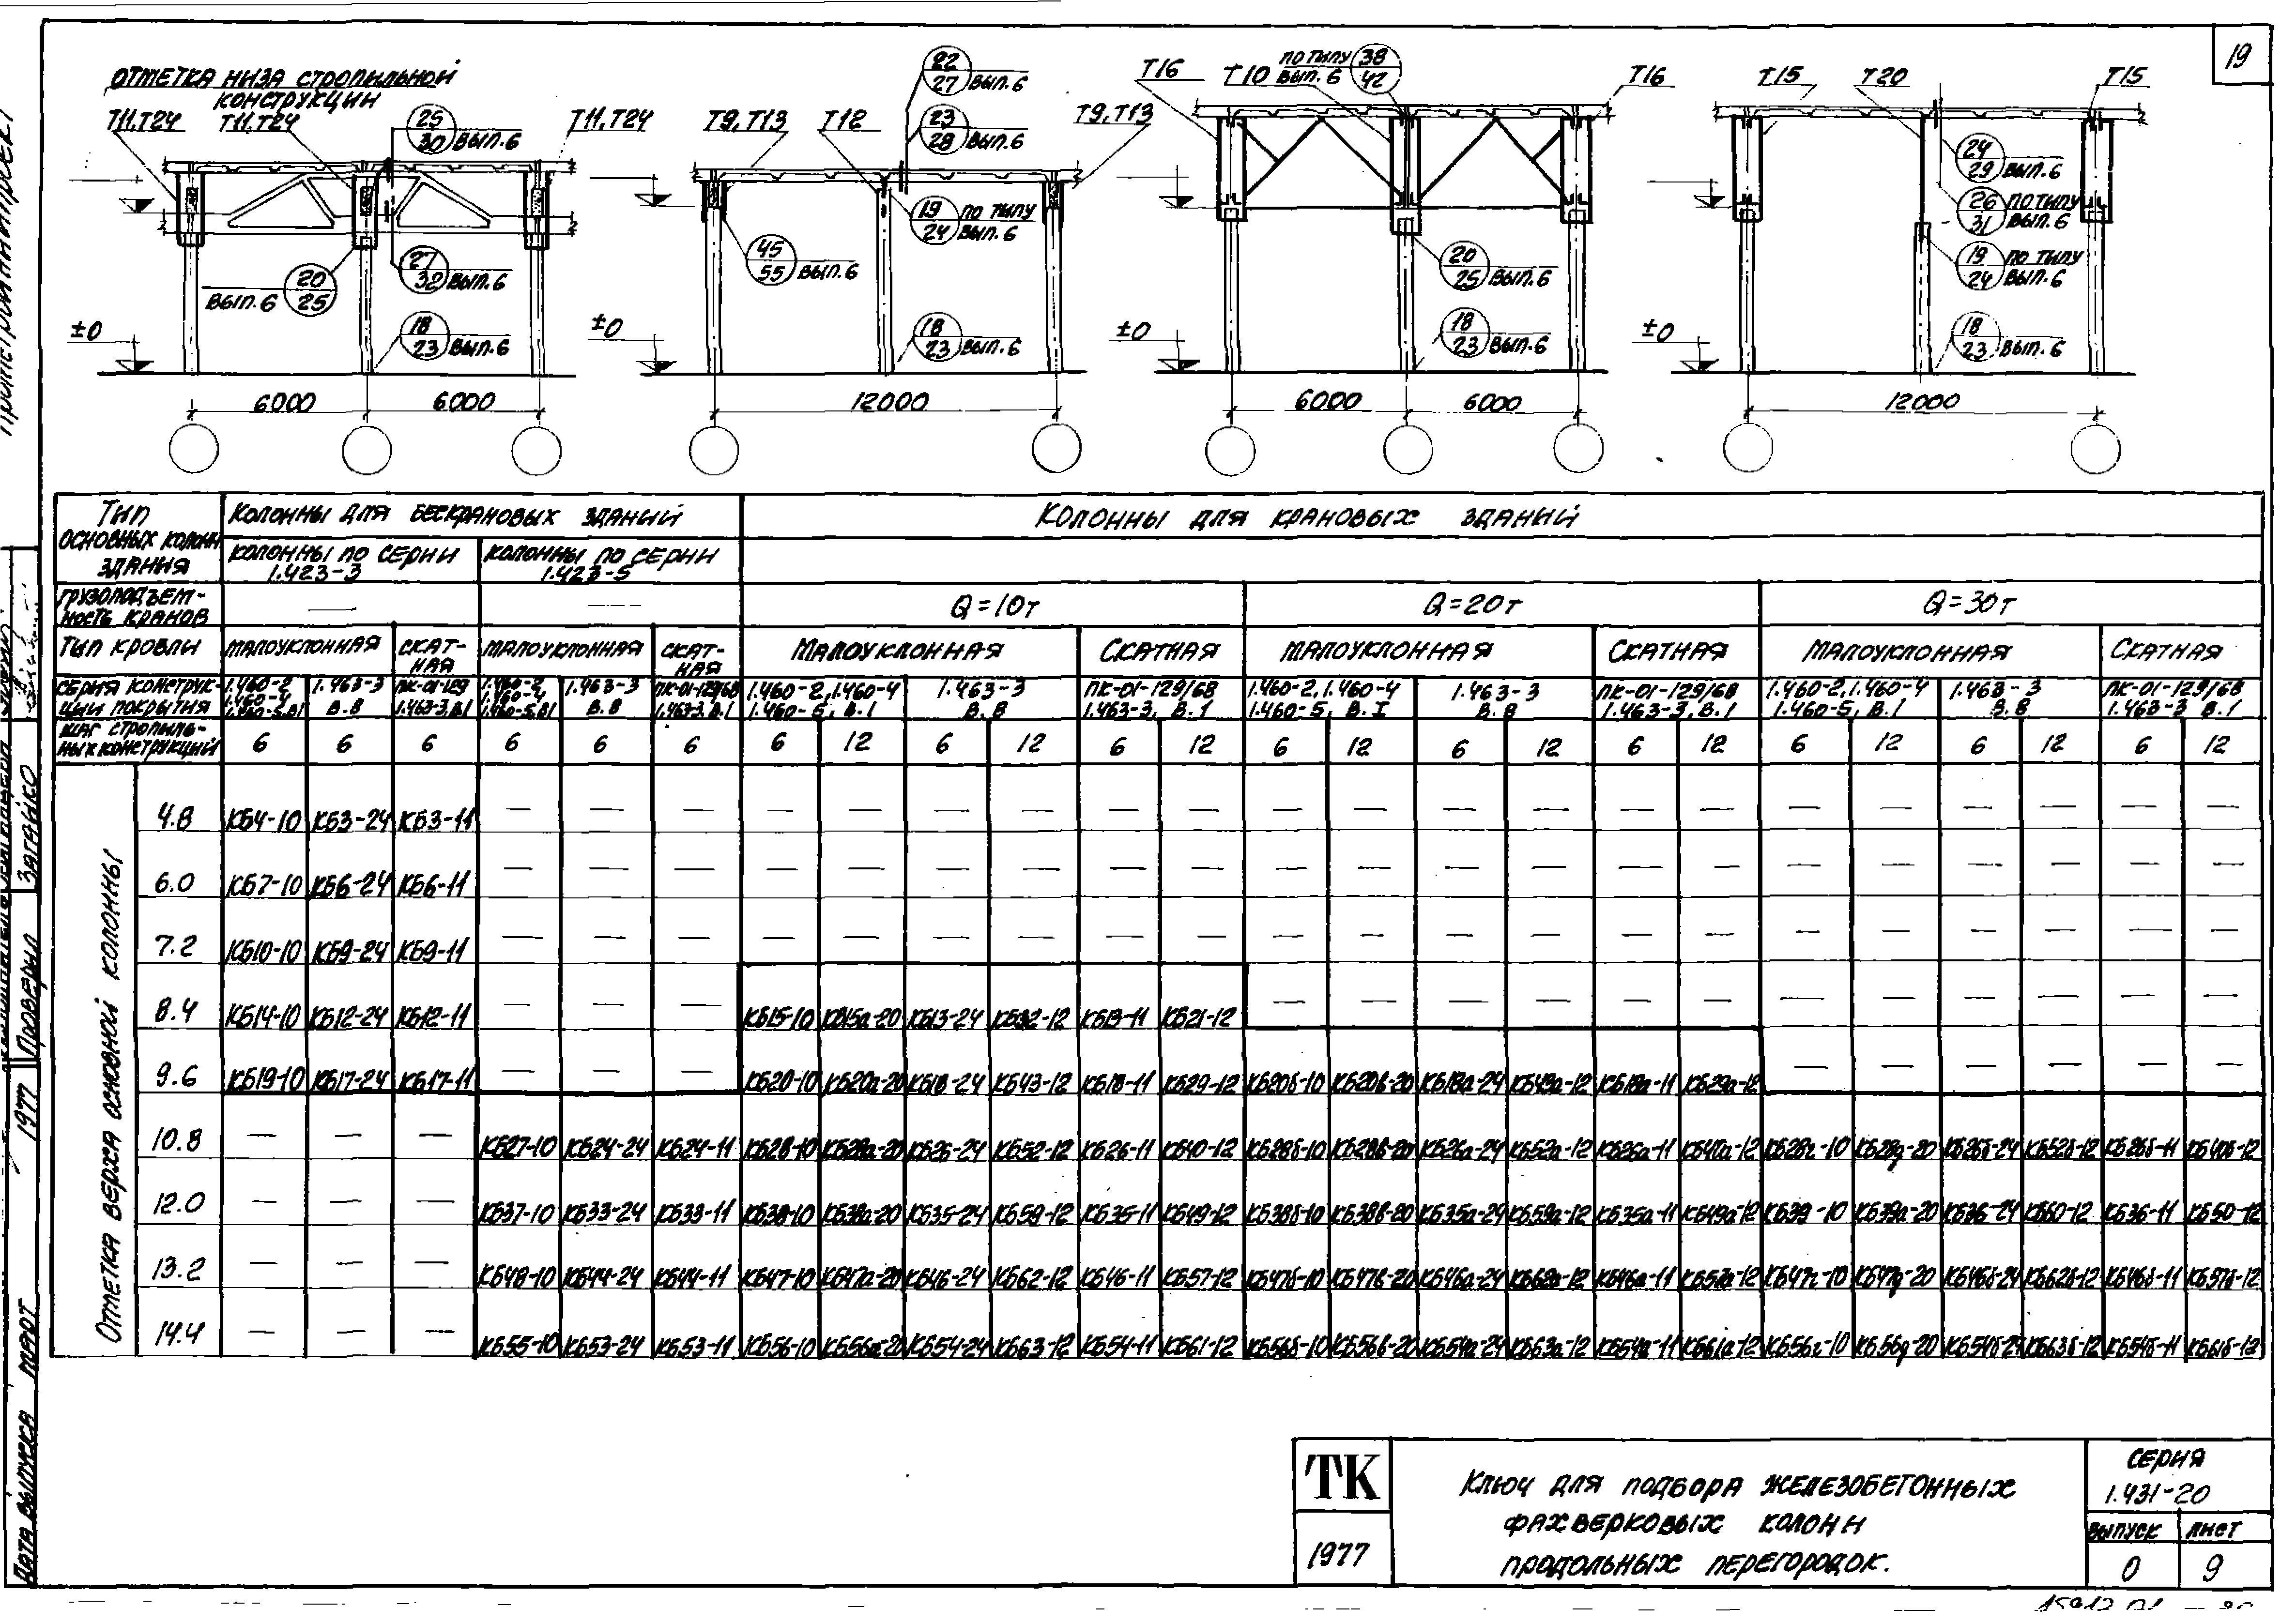 19
ОТМЕТКА НИЗА СТРОПИЛЬНОЙ
КОНСТРУКЦИИ
Т11,Т24 Т11,Т24 25 30 ВЫП.6 Т11,Т24
27 32 ВЫП.6
ВЫП.6 20 25
18 23 ВЫП.6
±0
6000 6000
22 27 ВЫП.6
Т9,Т13 Т12 23 28 ВЫП.6 Т9,Т13
19 24 ПО ТИПУ ВЫП.6
45 55 ВЫП.6
18 23 ВЫП.6
±0
12000
Т16 Т10 ПО ТИПУ ВЫП.6 38 42 Т16
20 25 ВЫП.6
18 23 ВЫП.6
±0
6000 6000
Т15 Т20 Т15
24 29 ВЫП.6
26 31 ПО ТИПУ ВЫП.6
19 24 ПО ТИПУ ВЫП.6
18 23 ВЫП.6
±0
12000
ТИП ОСНОВНЫХ КОЛОНН ЗДАНИЯ
КОЛОННЫ ДЛЯ БЕСКРАНОВЫХ ЗДАНИЙ КОЛОННЫ ДЛЯ КРАНОВЫХ ЗДАНИЙ
КОЛОННЫ ПО СЕРИИ 1.423-3 КОЛОННЫ ПО СЕРИИ 1.423-5
ГРУЗОПОДЪЕМ-НОСТЬ КРАНОВ — — Q=10т Q=20т Q=30т
ТИП КРОВЛИ МАЛОУКЛОННАЯ СКАТ-НАЯ МАЛОУКЛОННАЯ СКАТ-НАЯ МАЛОУКЛОННАЯ СКАТНАЯ МАЛОУКЛОННАЯ СКАТНАЯ МАЛОУКЛОННАЯ СКАТНАЯ
СЕРИЯ КОНСТРУК-ЦИИ ПОКРЫТИЯ 1.460-2 1.460-4 1.460-5,В1 1.463-3 В.8 ПК-01-129 1.463-3,В1 1.460-2 1.460-4 1.460-5,В1 1.463-3 В.8 ПК-01-129/68 1.463-3,В.1 1.460-2,1.460-4 1.460-5, В.1 1.463-3 В.8 ПК-01-129/68 1.463-3, В.1 1.460-2,1.460-4 1.460-5, В.I 1.463-3 В.8 ПК-01-129/68 1.463-3, В.1 1.460-2,1.460-4 1.460-5, В.1 1.463-3 В.8 ПК-01-129/68 1.463-3 В.1
ШАГ СТРОПИЛЬ-НЫХ КОНСТРУКЦИЙ 6 6 6 6 6 6 6 12 6 12 6 12 6 12 6 12 6 12 6 12 6 12 6 12
ОТМЕТКА ВЕРХА ОСНОВНОЙ КОЛОННЫ
4.8 КБ4-10 КБ3-24 КБ3-11 — — — — — — — — — — — — — — — — — — — — —
6.0 КБ7-10 КБ6-24 КБ6-11 — — — — — — — — — — — — — — — — — — — — —
7.2 КБ10-10 КБ9-24 КБ9-11 — — — — — — — — — — — — — — — — — — — — —
8.4 КБ14-10 КБ12-24 КБ12-11 — — — КБ15-10 КБ15а-20 КБ13-24 КБ32-12 КБ13-11 КБ21-12 — — — — — — — — — — — —
9.6 КБ19-10 КБ17-24 КБ17-11 — — — КБ20-10 КБ20а-20 КБ18-24 КБ43-12 КБ18-11 КБ29-12 КБ20б-10 КБ20в-20 КБ18а-24 КБ43а-12 КБ18а-11 КБ29а-12 — — — — — —
10.8 — — — КБ27-10 КБ24-24 КБ24-11 КБ28-10 КБ28а-20 КБ26-24 КБ52-12 КБ26-11 КБ40-12 КБ28б-10 КБ28в-20 КБ26а-24 КБ52а-12 КБ26а-11 КБ40а-12 КБ28г-10 КБ28д-20 КБ26б-24 КБ52б-12 КБ26б-11 КБ40б-12
12.0 — — — КБ37-10 КБ33-24 КБ33-11 КБ38-10 КБ38а-20 КБ35-24 КБ59-12 КБ35-11 КБ49-12 КБ38б-10 КБ38в-20 КБ35а-24 КБ59а-12 КБ35а-11 КБ49а-12 КБ39-10 КБ39а-20 КБ36-24 КБ60-12 КБ36-11 КБ50-12
13.2 — — — КБ48-10 КБ44-24 КБ44-11 КБ47-10 КБ47а-20 КБ46-24 КБ62-12 КБ46-11 КБ57-12 КБ47б-10 КБ47в-20 КБ46а-24 КБ62а-12 КБ46а-11 КБ57а-12 КБ47г-10 КБ47д-20 КБ46б-24 КБ62б-12 КБ46б-11 КБ57б-12
14.4 — — — КБ55-10 КБ53-24 КБ53-11 КБ56-10 КБ56а-20 КБ54-24 КБ63-12 КБ54-11 КБ61-12 КБ56б-10 КБ56в-20 КБ54а-24 КБ63а-12 КБ54а-11 КБ61а-12 КБ56г-10 КБ56д-20 КБ54б-24 КБ63б-12 КБ54б-11 КБ61б-12
ТК
1977
КЛЮЧ ДЛЯ ПОДБОРА ЖЕЛЕЗОБЕТОННЫХ
ФАХВЕРКОВЫХ КОЛОНН
ПРОДОЛЬНЫХ ПЕРЕГОРОДОК.
СЕРИЯ
1.431-20
ВЫПУСК ЛИСТ
0 9
ДАТА ВЫПУСКА МАРТ 1977
ПРОВЕРИЛ ЗАГАЙКО